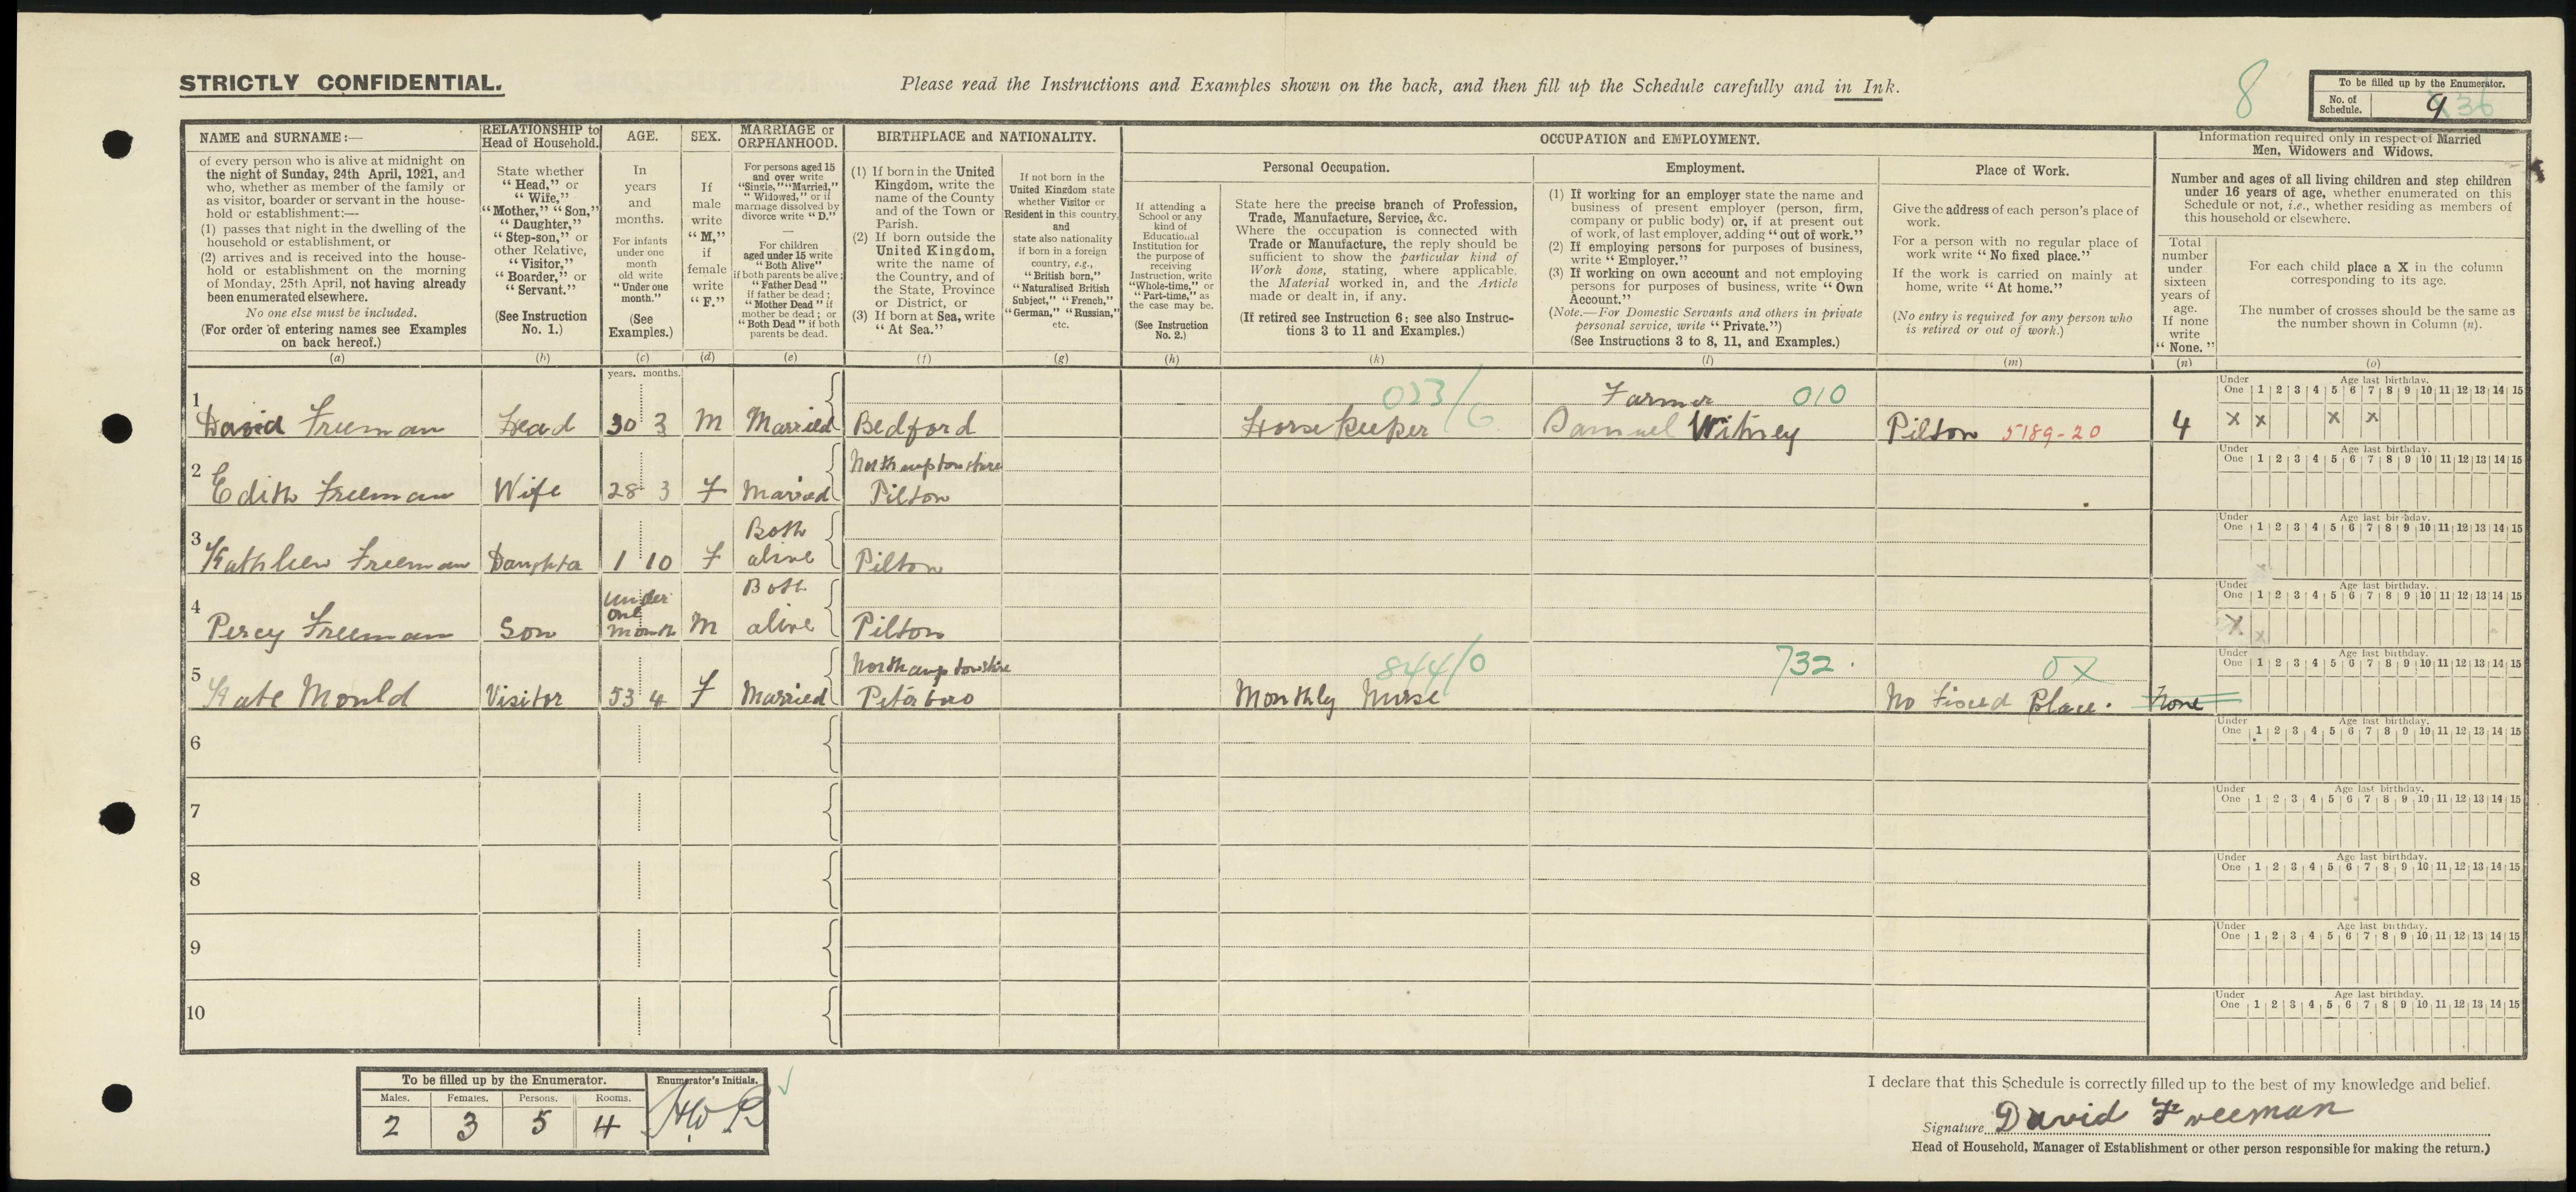 STRICTLY CONFIDENTIAL.
Please read the Instructions and Examples shown on the back, and then fill up the Schedule carefully and in Ink.
8
To be filled up by the Enumerator.
No. of Schedule. 9 36
NAME and SURNAME:—
of every person who is alive at midnight on
the night of Sunday, 24th April, 1921, and
who, whether as member of the family or
as visitor, boarder or servant in the house-
hold or establishment:—
(1) passes that night in the dwelling of the
household or establishment, or
(2) arrives and is received into the house-
hold or establishment on the morning
of Monday, 25th April, not having already
been enumerated elsewhere.
No one else must be included.
(For order of entering names see Examples
on back hereof.)
(a)
RELATIONSHIP to
Head of Household.
State whether
“Head,” or
“Wife,”
“Mother,” “Son,”
“Daughter,”
“Step-son,” or
other Relative,
“Visitor,”
“Boarder,” or
“Servant.”
(See Instruction
No. 1.)
(b)
AGE.
In
years
and
months.
For infants
under one
month
old write
“Under one
month.”
(See
Examples.)
(c)
SEX.
If
male
write
“M,”
if
female
write
“F.”
(d)
MARRIAGE or
ORPHANHOOD.
For persons aged 15
and over write
“Single,” “Married,”
“Widowed,” or if
marriage dissolved by
divorce write “D.”
—
For children
aged under 15 write
“Both Alive”
if both parents be alive;
“Father Dead”
if father be dead;
“Mother Dead” if
mother be dead; or
“Both Dead” if both
parents be dead.
(e)
BIRTHPLACE and NATIONALITY.
(1) If born in the United
Kingdom, write the
name of the County
and of the Town or
Parish.
(2) If born outside the
United Kingdom,
write the name of
the Country, and of
the State, Province
or District, or
(3) If born at Sea, write
“At Sea.”
(f)
If not born in the
United Kingdom state
whether Visitor or
Resident in this country,
and
state also nationality
if born in a foreign
country, e.g.,
“British born,”
“Naturalised British
Subject,” “French,”
“German,” “Russian,”
etc.
(g)
OCCUPATION and EMPLOYMENT.
If attending a
School or any
kind of
Educational
Institution for
the purpose of
receiving
Instruction, write
“Whole-time,” or
“Part-time,” as
the case may be.
(See Instruction
No. 2.)
(h)
Personal Occupation.
State here the precise branch of Profession,
Trade, Manufacture, Service, &c.
Where the occupation is connected with
Trade or Manufacture, the reply should be
sufficient to show the particular kind of
Work done, stating, where applicable,
the Material worked in, and the Article
made or dealt in, if any.
(If retired see Instruction 6: see also Instruc-
tions 3 to 11 and Examples.)
(k)
Employment.
(1) If working for an employer state the name and
business of present employer (person, firm,
company or public body) or, if at present out
of work, of last employer, adding “out of work.”
(2) If employing persons for purposes of business,
write “Employer.”
(3) If working on own account and not employing
persons for purposes of business, write “Own
Account.”
(Note.—For Domestic Servants and others in private
personal service, write “Private.”)
(See Instructions 3 to 8, 11, and Examples.)
(l)
Place of Work.
Give the address of each person's place of
work.
For a person with no regular place of
work write “No fixed place.”
If the work is carried on mainly at
home, write “At home.”
(No entry is required for any person who
is retired or out of work.)
(m)
Information required only in respect of Married
Men, Widowers and Widows.
Number and ages of all living children and step children
under 16 years of age, whether enumerated on this
Schedule or not, i.e., whether residing as members of
this household or elsewhere.
Total
number
under
sixteen
years of
age.
If none
write
“None.”
(n)
For each child place a X in the column
corresponding to its age.
The number of crosses should be the same as
the number shown in Column (n).
(o)
years. months.
Under One Age last birthday. 1 2 3 4 5 6 7 8 9 10 11 12 13 14 15
023/6 Farmer 010
1 David Freeman Head 30 3 M Married Bedford Horse keeper Samuel Witney Pilton 5189-20 4 X X X X
Under One Age last birthday. 1 2 3 4 5 6 7 8 9 10 11 12 13 14 15
Northamptonshire
2 Edith Freeman Wife 28 3 F Married Pilton
Under One Age last birthday. 1 2 3 4 5 6 7 8 9 10 11 12 13 14 15
Both
3 Kathleen Freeman Daughter 1 10 F alive Pilton
Under One Age last birthday. 1 2 3 4 5 6 7 8 9 10 11 12 13 14 15
under one Both
4 Percy Freeman Son month M alive Pilton X
Under One Age last birthday. 1 2 3 4 5 6 7 8 9 10 11 12 13 14 15
Northamptonshire 844/0 732. 0X
5 Kate Mould Visitor 53 4 F Married Peterboro Monthly Nurse No Fixed Place. None
6 Under One Age last birthday. 1 2 3 4 5 6 7 8 9 10 11 12 13 14 15
7 Under One Age last birthday. 1 2 3 4 5 6 7 8 9 10 11 12 13 14 15
8 Under One Age last birthday. 1 2 3 4 5 6 7 8 9 10 11 12 13 14 15
9 Under One Age last birthday. 1 2 3 4 5 6 7 8 9 10 11 12 13 14 15
10 Under One Age last birthday. 1 2 3 4 5 6 7 8 9 10 11 12 13 14 15
To be filled up by the Enumerator.
Males. Females. Persons. Rooms.
2 3 5 4
Enumerator's Initials.
I declare that this Schedule is correctly filled up to the best of my knowledge and belief.
Signature David Freeman
Head of Household, Manager of Establishment or other person responsible for making the return.)